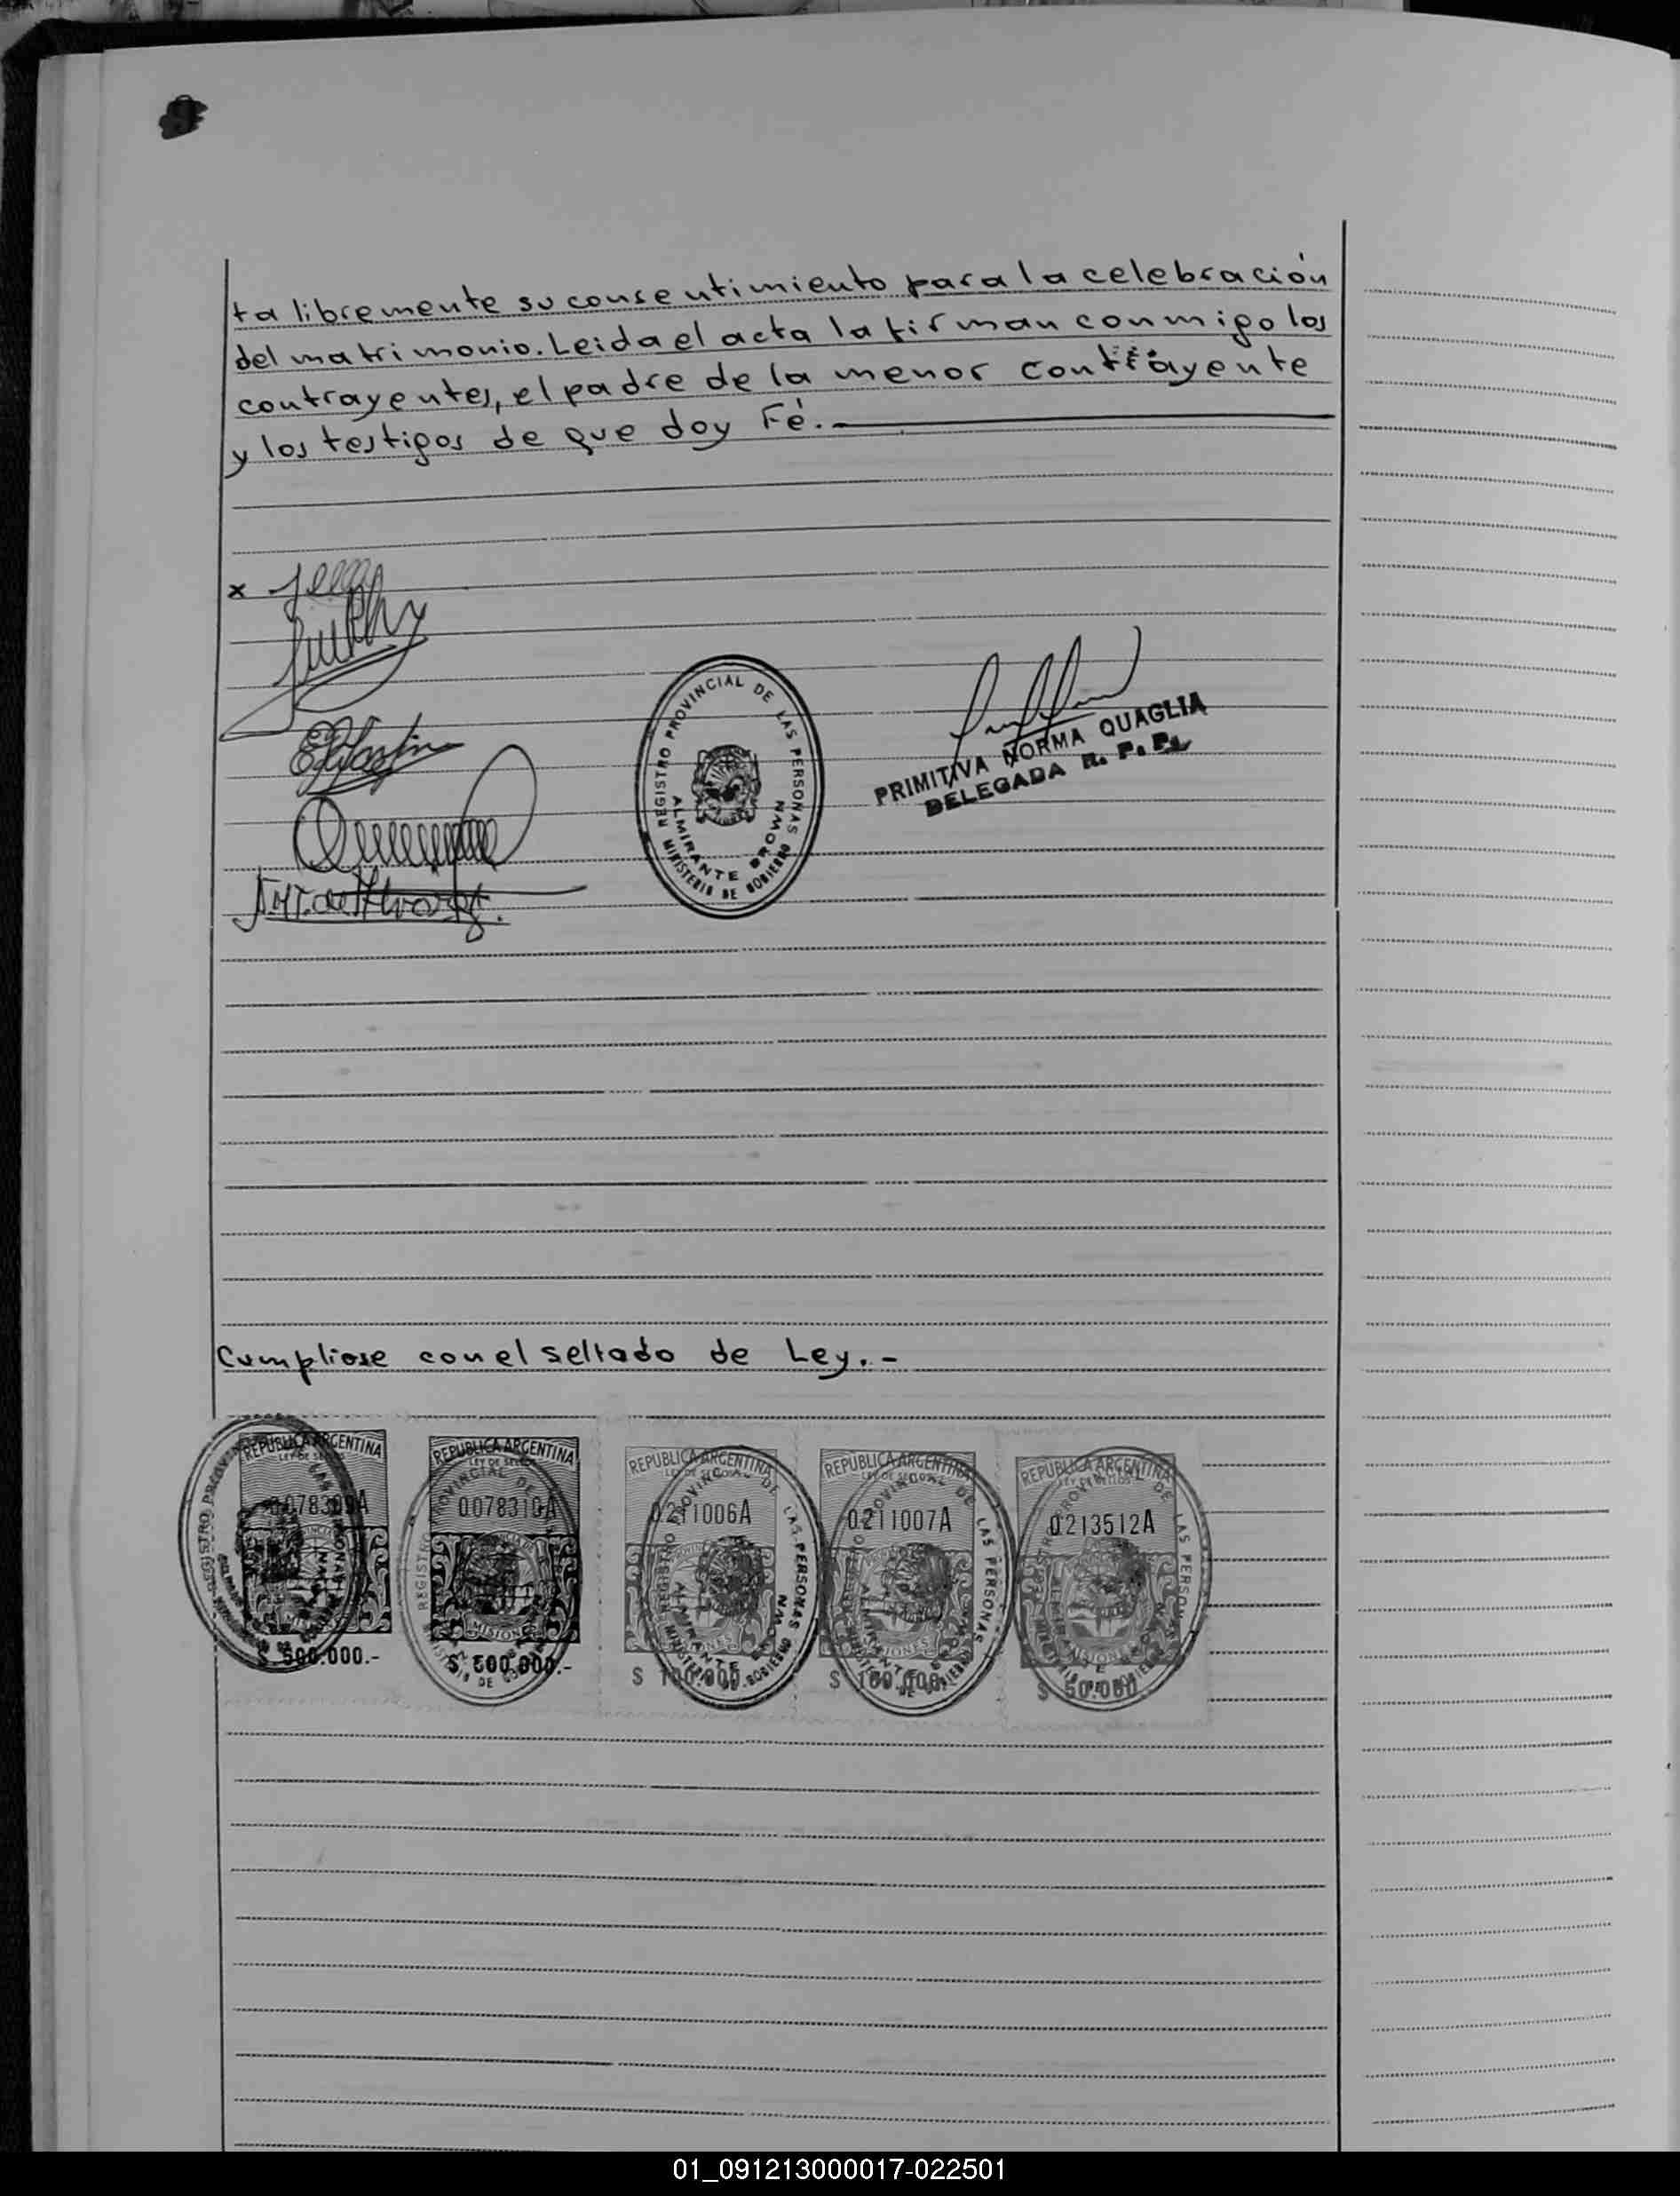 ta libremente su consentimiento para la celebración
del matrimonio. Leida el acta la firman conmigo los
contrayentes, el padre de la menor contrayente
y los testigos de que doy Fé.-
x
REGISTRO PROVINCIAL DE LAS PERSONAS
ALMIRANTE BROWN
MINISTERIO DE GOBIERNO
PRIMITIVA NORMA QUAGLIA
DELEGADA R. P. P.
Cumpliose con el sellado de Ley.-
REPUBLICA ARGENTINA REPUBLICA ARGENTINA REPUBLICA ARGENTINA REPUBLICA ARGENTINA REPUBLICA ARGENTINA
0.078310A 0.211006A 0.211007A 0.213512A
$ 500.000.- $ 500.000.- $ 100.000 $ 100.000 $ 50.000
01_091213000017-022501